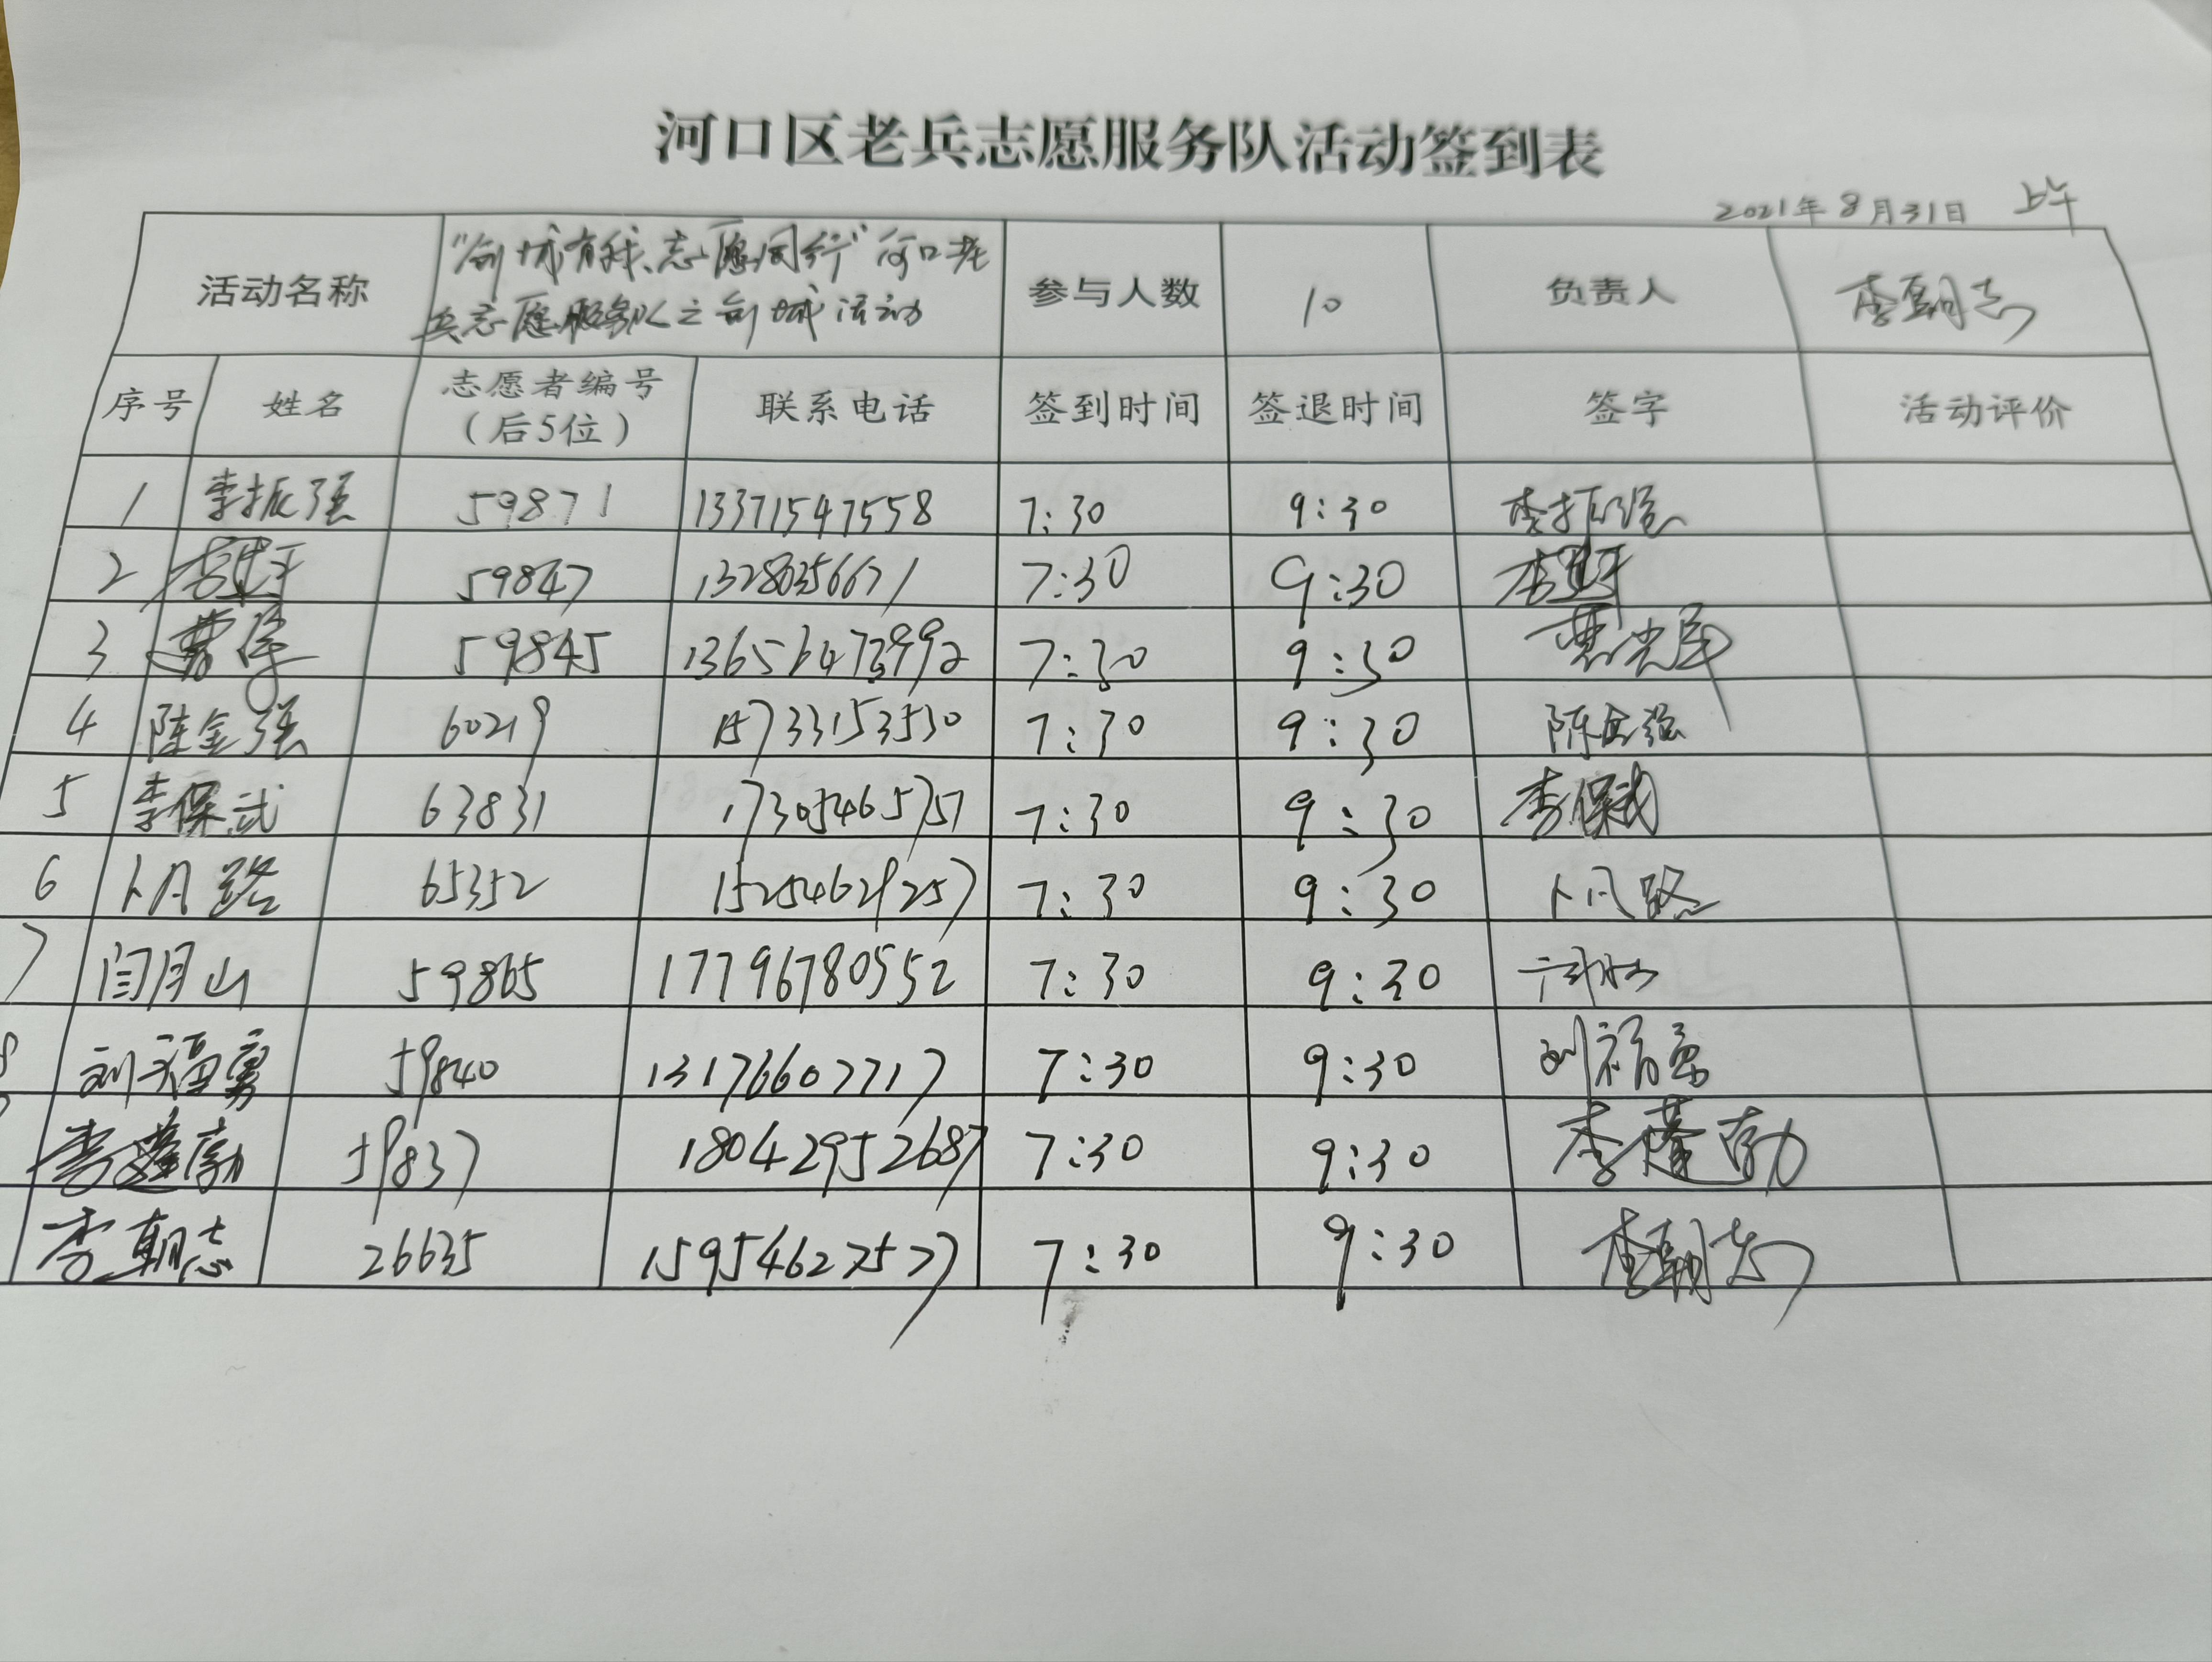 河口区老兵志愿服务队活动签到表
2021年8月31日 上午
活动名称 "创城有我、志愿同行"河口老兵志愿服务队之创城活动 参与人数 10 负责人 李朝志
序号 姓名 志愿者编号（后5位） 联系电话 签到时间 签退时间 签字 活动评价
1 李振强 59871 13371547558 7:30 9:30 李振强
2 59847 7:30 9:30
3 59845 7:30 9:30
4 陈金强 60219 15733153530 7:30 9:30 陈金强
5 李保武 63831 17305465757 7:30 9:30 李保武
6 卜凡路 65352 15254629257 7:30 9:30 卜凡路
7 闫月山 59865 17796780552 7:30 9:30
刘福勇 59840 13176607717 7:30 9:30
59837 18042952687 7:30 9:30
李朝志 26635 15954627577 7:30 9:30 李朝志